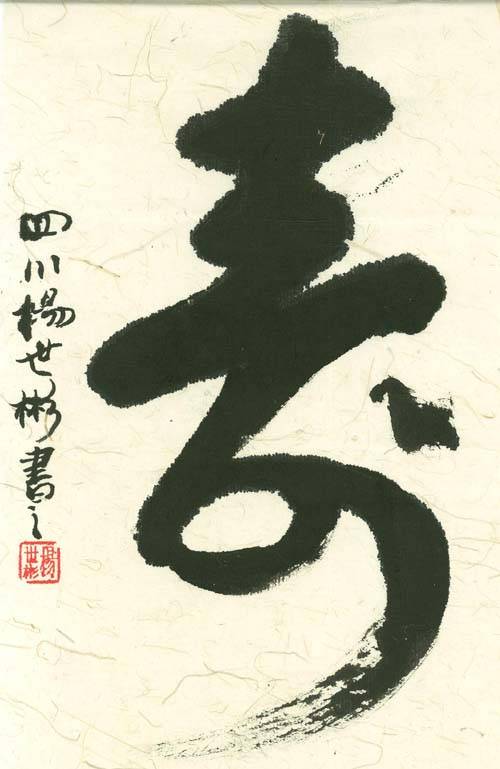 寿
四川楊世彬書之
楊世彬